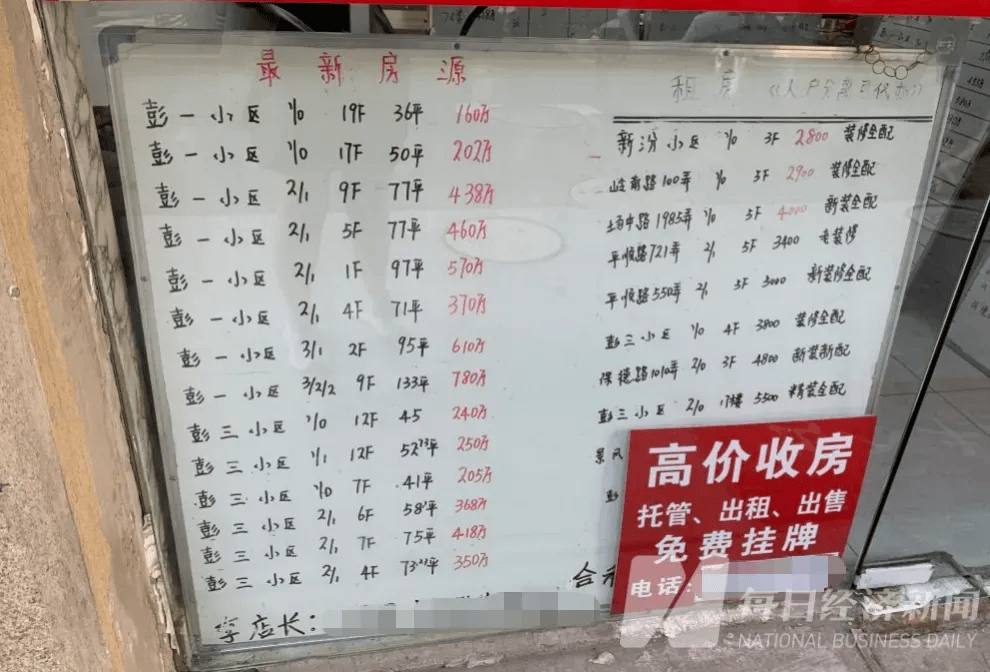 最新房源
彭一小区 1/0 19F 36平 160万
彭一小区 1/0 17F 50平 202万
彭一小区 2/1 9F 77平 438万
彭一小区 2/1 5F 77平 460万
彭一小区 2/1 1F 97平 570万
彭一小区 2/1 4F 71平 370万
彭一小区 3/1 2F 95平 610万
彭一小区 3/2/2 9F 133平 780万
彭三小区 1/0 12F 45 240万
彭三小区 1/1 12F 52.73平 250万
彭三小区 1/0 7F 41平 205万
彭三小区 2/1 6F 58平 368万
彭三小区 2/1 7F 75平 418万
彭三小区 2/1 4F 73.22平 350万
李店长:
租房 《人户分离可代办》
新汾小区 1/0 3F 2800 装修全配
岭南路100弄 1/0 3F 2900 装修全配
1985弄 1/0 3F 4000 新装全配
平顺路721弄 2/1 5F 3400 老装修
平顺路550弄 2/1 3F 3000 新装修全配
彭三小区 1/0 4F 3800 装修全配
保德路1010弄 2/0 3F 4800 新装新配
彭三小区 2/0 17楼 5500 精装全配
彭
高价收房
托管、出租、出售
免费挂牌
电话:
每日经济新闻
NATIONAL BUSINESS DAILY